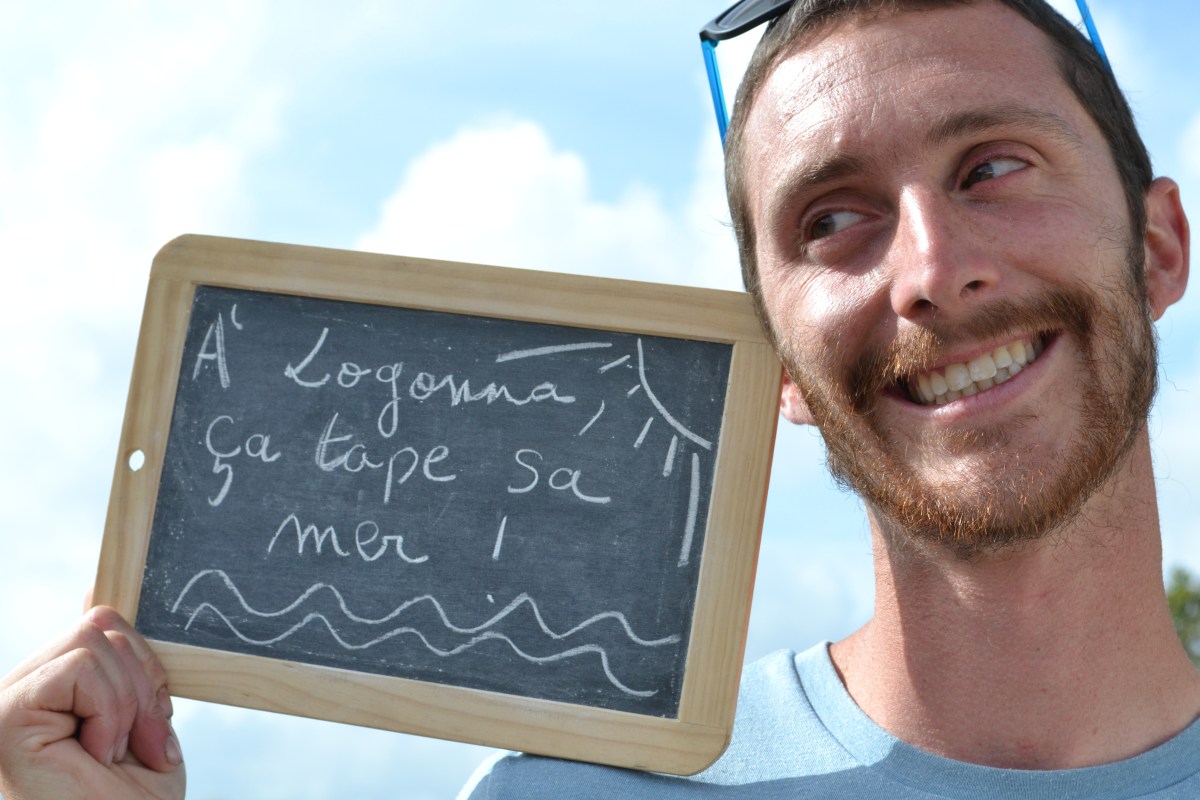 A' Logonna
Ça tape sa
mer !